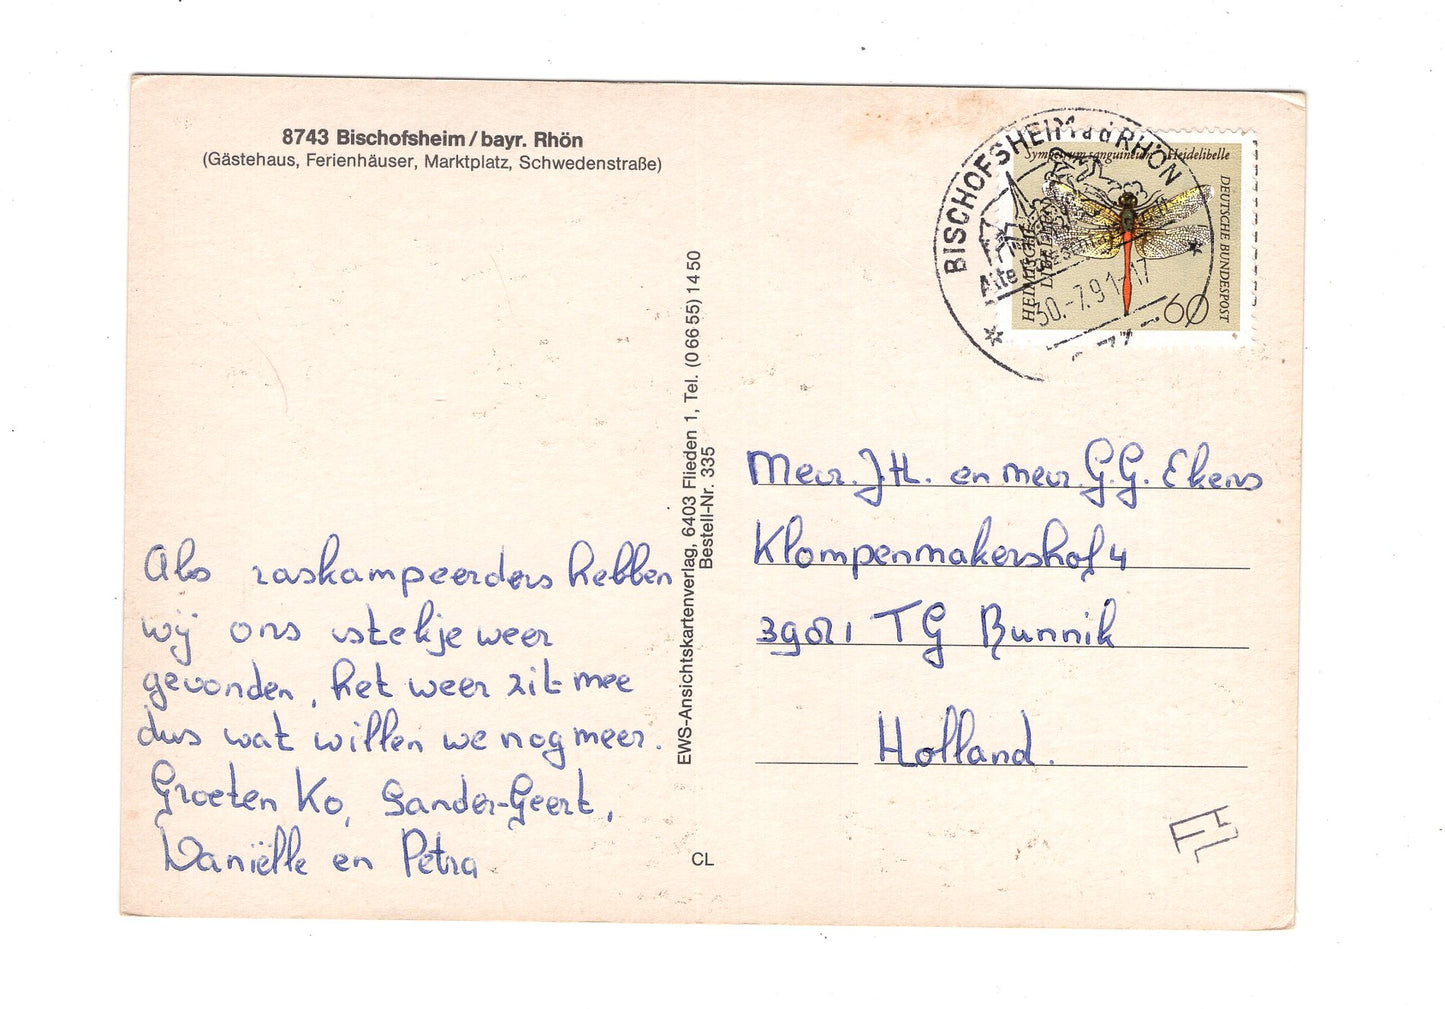 8743 Bischofsheim / bayr. Rhön
(Gästehaus, Ferienhäuser, Marktplatz, Schwedenstraße)
Als raskampeerders hebben
wij ons stekje weer
gevonden, het weer zit mee
dus wat willen we nog meer.
Groeten Ko, Sander-Geert,
Daniëlle en Petra
EWS-Ansichtskartenverlag, 6403 Flieden 1, Tel. (0 66 55) 14 50
Bestell-Nr. 335
CL
BISCHOFSHEIM a d RHÖN
Alte
30.-7.91-17
Sympetrum sanguineum Heidelibelle
HEIMISCHE
LIBELLEN
DEUTSCHE BUNDESPOST
60
Mevr. J.H. en mevr. G.G. Ekens
Klompenmakershof 4
3981 TG Bunnik
Holland.